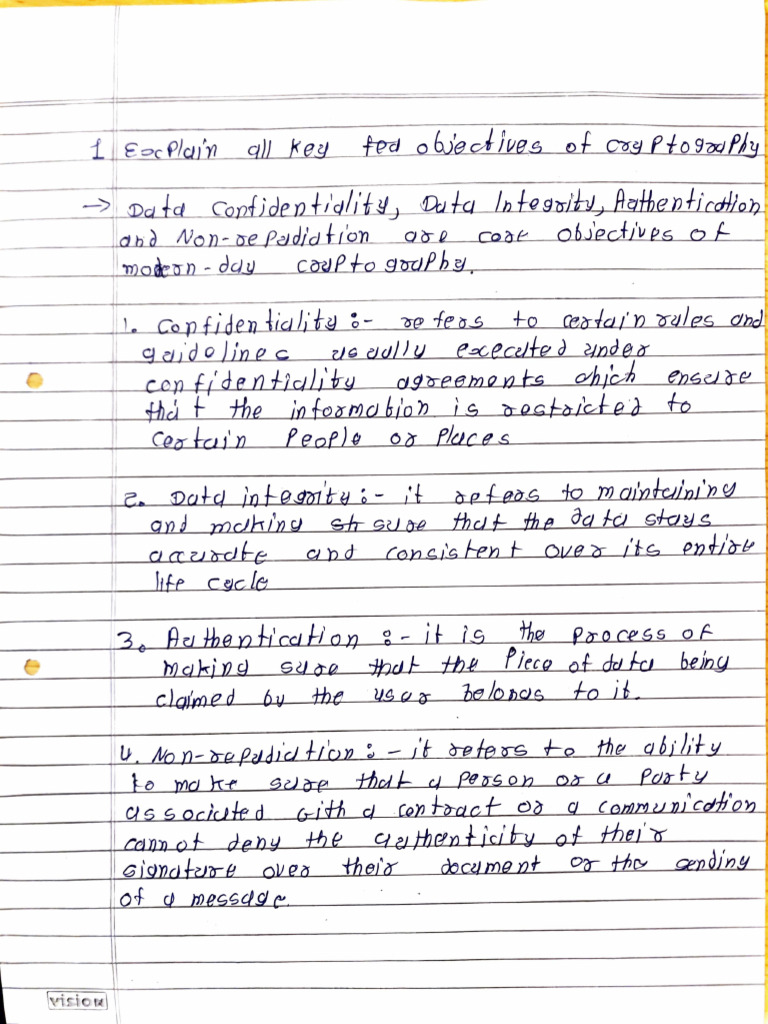 1 Explain all key fea objectives of cryptography
→ Data Confidentiality, Data Integrity, Authentication
and Non-repudiation are core objectives of
modern-day cryptography.
1. Confidentiality :- refers to certain rules and
guidelines usually executed under
confidentiality agreements which ensure
that the information is restricted to
certain People or Places
2. Data integrity :- it refers to maintaining
and making sure that the data stays
accurate and consistent over its entire
life cycle
3. Authentication :- it is the process of
making sure that the Piece of data being
claimed by the user belongs to it.
4. Non-repudiation :- it refers to the ability
to make sure that a person or a Party
associated with a contract or a communication
cannot deny the authenticity of their
signature over their document or the sending
of a message.
vision